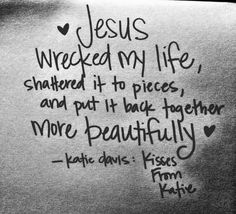 ♥ Jesus
wrecked my life,
shattered it to pieces,
and put it back together
more beautifully ♥
—katie davis: Kisses
From
Katie